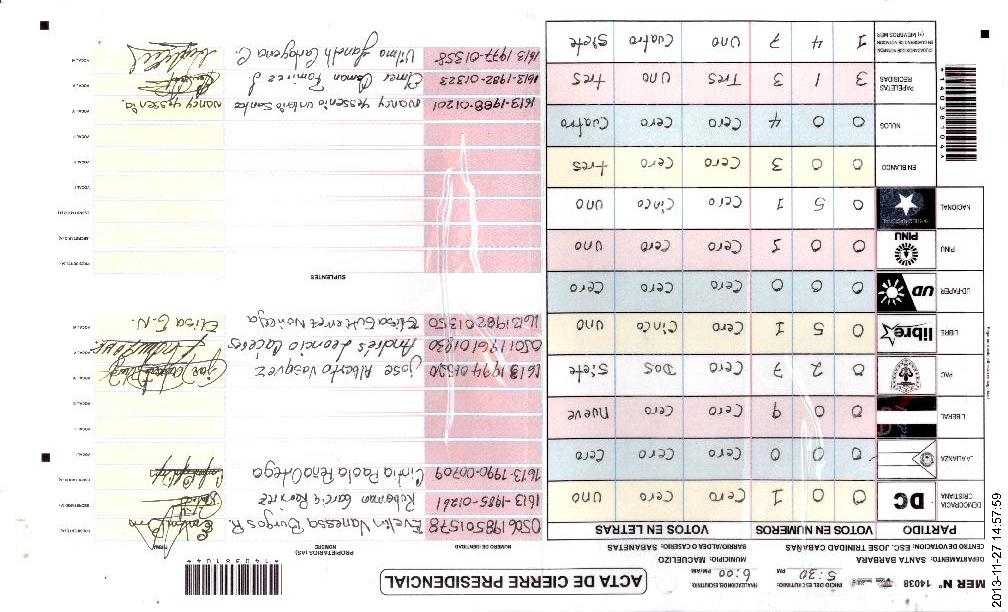 MER N° 14038
ACTA DE CIERRE PRESIDENCIAL
INICIO DEL ESCRUTINIO: 5:30 PM
FINALIZACION DE ESCRUTINIO: 6:00
DEPARTAMENTO: SANTA BARBARA MUNICIPIO: MACUELIZO
CENTRO DE VOTACION: ESC. JOSE TRINIDAD CABAÑAS BARRIO/ALDEA O CASERIO: SABANETAS
PARTIDO VOTOS EN NUMEROS VOTOS EN LETRAS
DEMOCRACIA CRISTIANA DC 0 0 1 Cero Cero Uno
ALIANZA 0 0 0 Cero Cero Cero
LIBERAL 0 0 9 Cero Cero Nueve
PAC 0 2 7 Cero Dos Siete
LIBRE libre 0 5 1 Cero Cinco uno
UD-FAPER UD 0 0 0 Cero Cero Cero
PINU PINU 0 0 1 Cero Cero Uno
NACIONAL 0 5 1 Cero Cinco uno
EN BLANCO 0 0 3 Cero Cero tres
NULOS 0 0 4 Cero Cero Cuatro
PAPELETAS RECIBIDAS 3 1 3 Tres Uno tres
1 4 7 Uno Cuatro Siete
*14038104*
PROPIETARIOS (AS)
NUMERO DE IDENTIDAD NOMBRE FIRMA
0506198501578 Evelin Vanessa Burgos R.
1613-1985-01261
1613-1990-00709 Cintia Paola Peña Ortega
1613 1994 01320 jose Alberto Vasquez
0501196101830 Andrés Leoncio Caceres
1613198201350 Elisa E.N.
SUPLENTES
1613-1988-01201 nancy yessenia
1613-1982-01323 Elmer Osman Ramirez J.
1613 1977-01358 Vilma Janeth Cartagena C.
2013-11-27 14:57:59